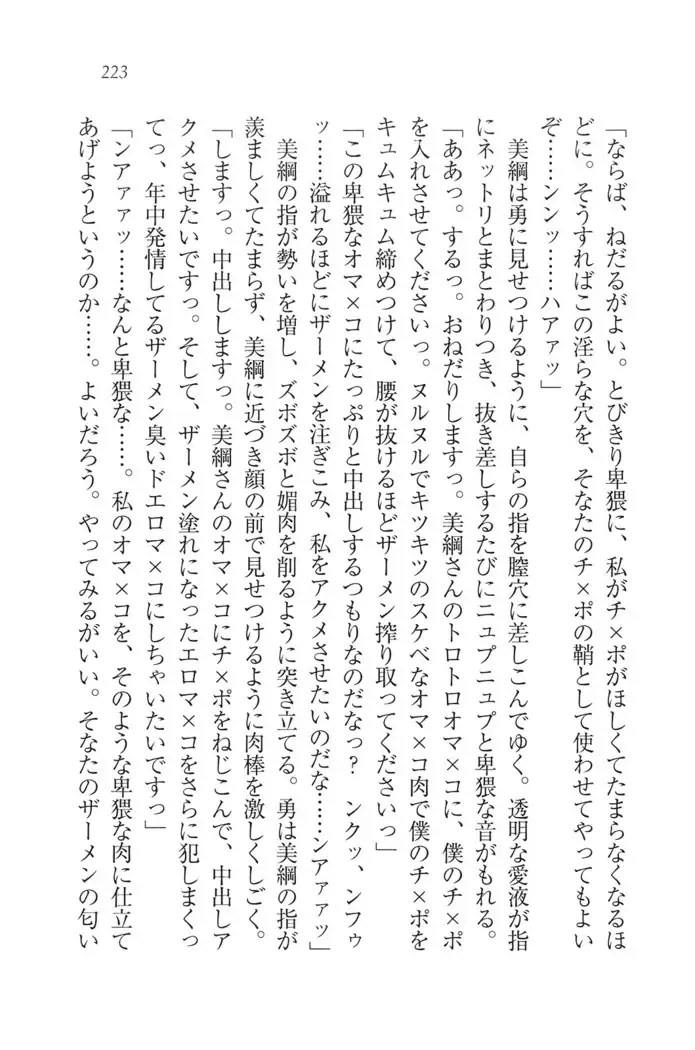 223
「ならば、ねだるがよい。とびきり卑猥に、私がチ×ポがほしくてたまらなくなるほ
どに。そうすればこの淫らな穴を、そなたのチ×ポの鞘として使わせてやってもよい
ぞ……ンンッ……ハアァッ」
美綱は勇に見せつけるように、自らの指を膣穴に差しこんでゆく。透明な愛液が指
にネットリとまとわりつき、抜き差しするたびにニュプニュプと卑猥な音がもれる。
「ああっ。するっ。おねだりしますっ。美綱さんのトロトロオマ×コに、僕のチ×ポ
を入れさせてくださいっ。ヌルヌルでキツキツのスケベなオマ×コ肉で僕のチ×ポを
キュムキュム締めつけて、腰が抜けるほどザーメン搾り取ってくださいっ」
「この卑猥なオマ×コにたっぷりと中出しするつもりなのだなっ？　ンクッ、ンフゥ
ッ……溢れるほどにザーメンを注ぎこみ、私をアクメさせたいのだな……ンアァァッ」
美綱の指が勢いを増し、ズボズボと媚肉を削るように突き立てる。勇は美綱の指が
羨ましくてたまらず、美綱に近づき顔の前で見せつけるように肉棒を激しくしごく。
「しますっ。中出ししますっ。美綱さんのオマ×コにチ×ポをねじこんで、中出しア
クメさせたいですっ。そして、ザーメン塗れになったエロマ×コをさらに犯しまくっ
てっ、年中発情してるザーメン臭いドエロマ×コにしちゃいたいですっ」
「ンアァァッ……なんと卑猥な……。私のオマ×コを、そのような卑猥な肉に仕立て
あげようというのか……。よいだろう。やってみるがいい。そなたのザーメンの匂い